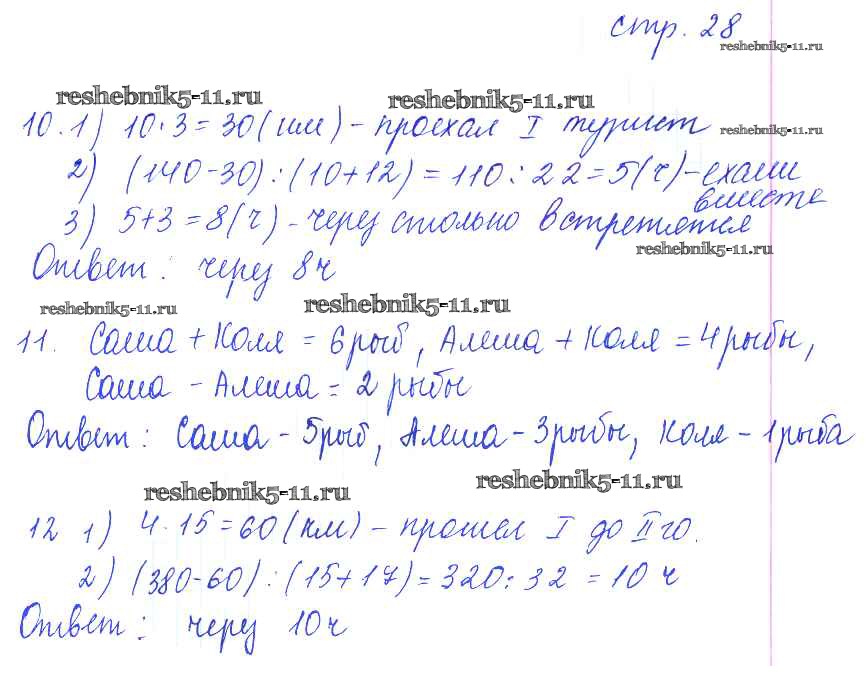 стр. 28
reshebnik5-11.ru
reshebnik5-11.ru reshebnik5-11.ru
10. 1) 10·3=30(км) - проехал I турист reshebnik5-11.ru
2) (140-30):(10+12)=110:22=5(ч)-ехали
вместе
3) 5+3=8(ч) - через столько встретятся
reshebnik5-11.ru
Ответ: через 8ч
reshebnik5-11.ru reshebnik5-11.ru
11. Саша + Коля = 6 рыб, Алеша + Коля = 4 рыбы,
Саша - Алеша = 2 рыбы
Ответ: Саша - 5 рыб, Алеша - 3 рыбы, Коля - 1 рыба
reshebnik5-11.ru reshebnik5-11.ru
12 1) 4·15=60(км) - прошел I до II го.
2) (380-60):(15+17)=320:32=10 ч
Ответ: через 10ч